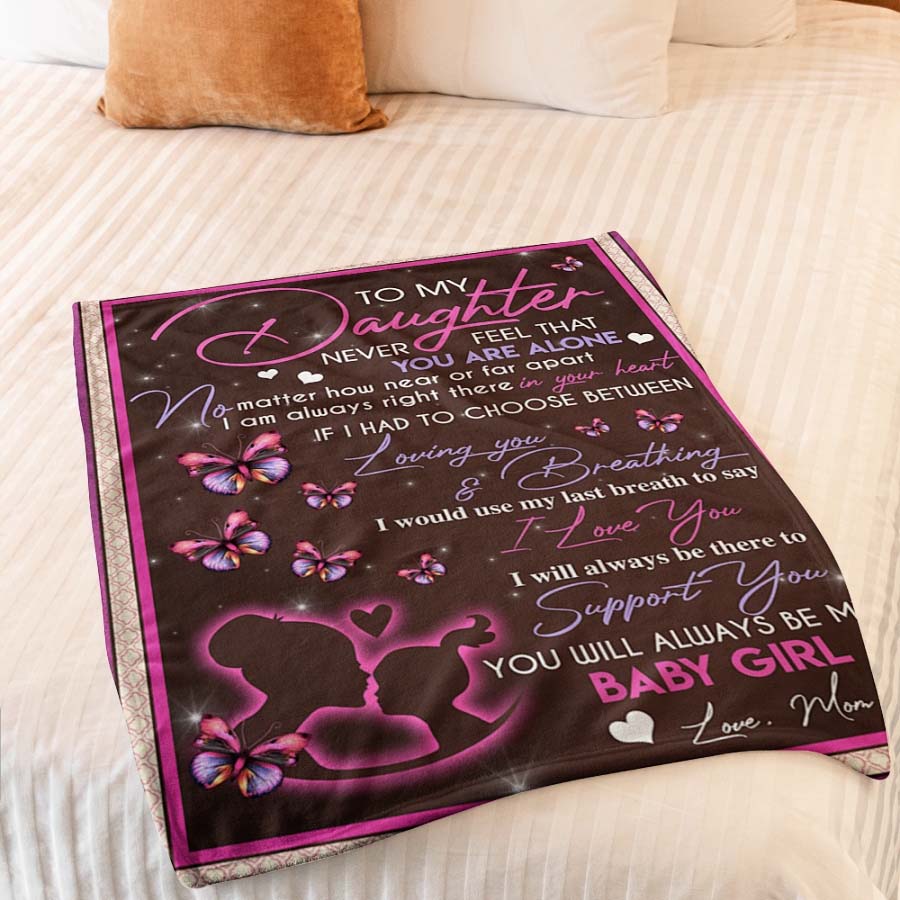 TO MY
Daughter
NEVER FEEL THAT
YOU ARE ALONE
No matter how near or far apart
I am always right there in your heart
IF I HAD TO CHOOSE BETWEEN
Loving you
& Breathing
I would use my last breath to say
I Love You
I will always be there to
Support You
YOU WILL ALWAYS BE M
BABY GIRL
Love, Mom